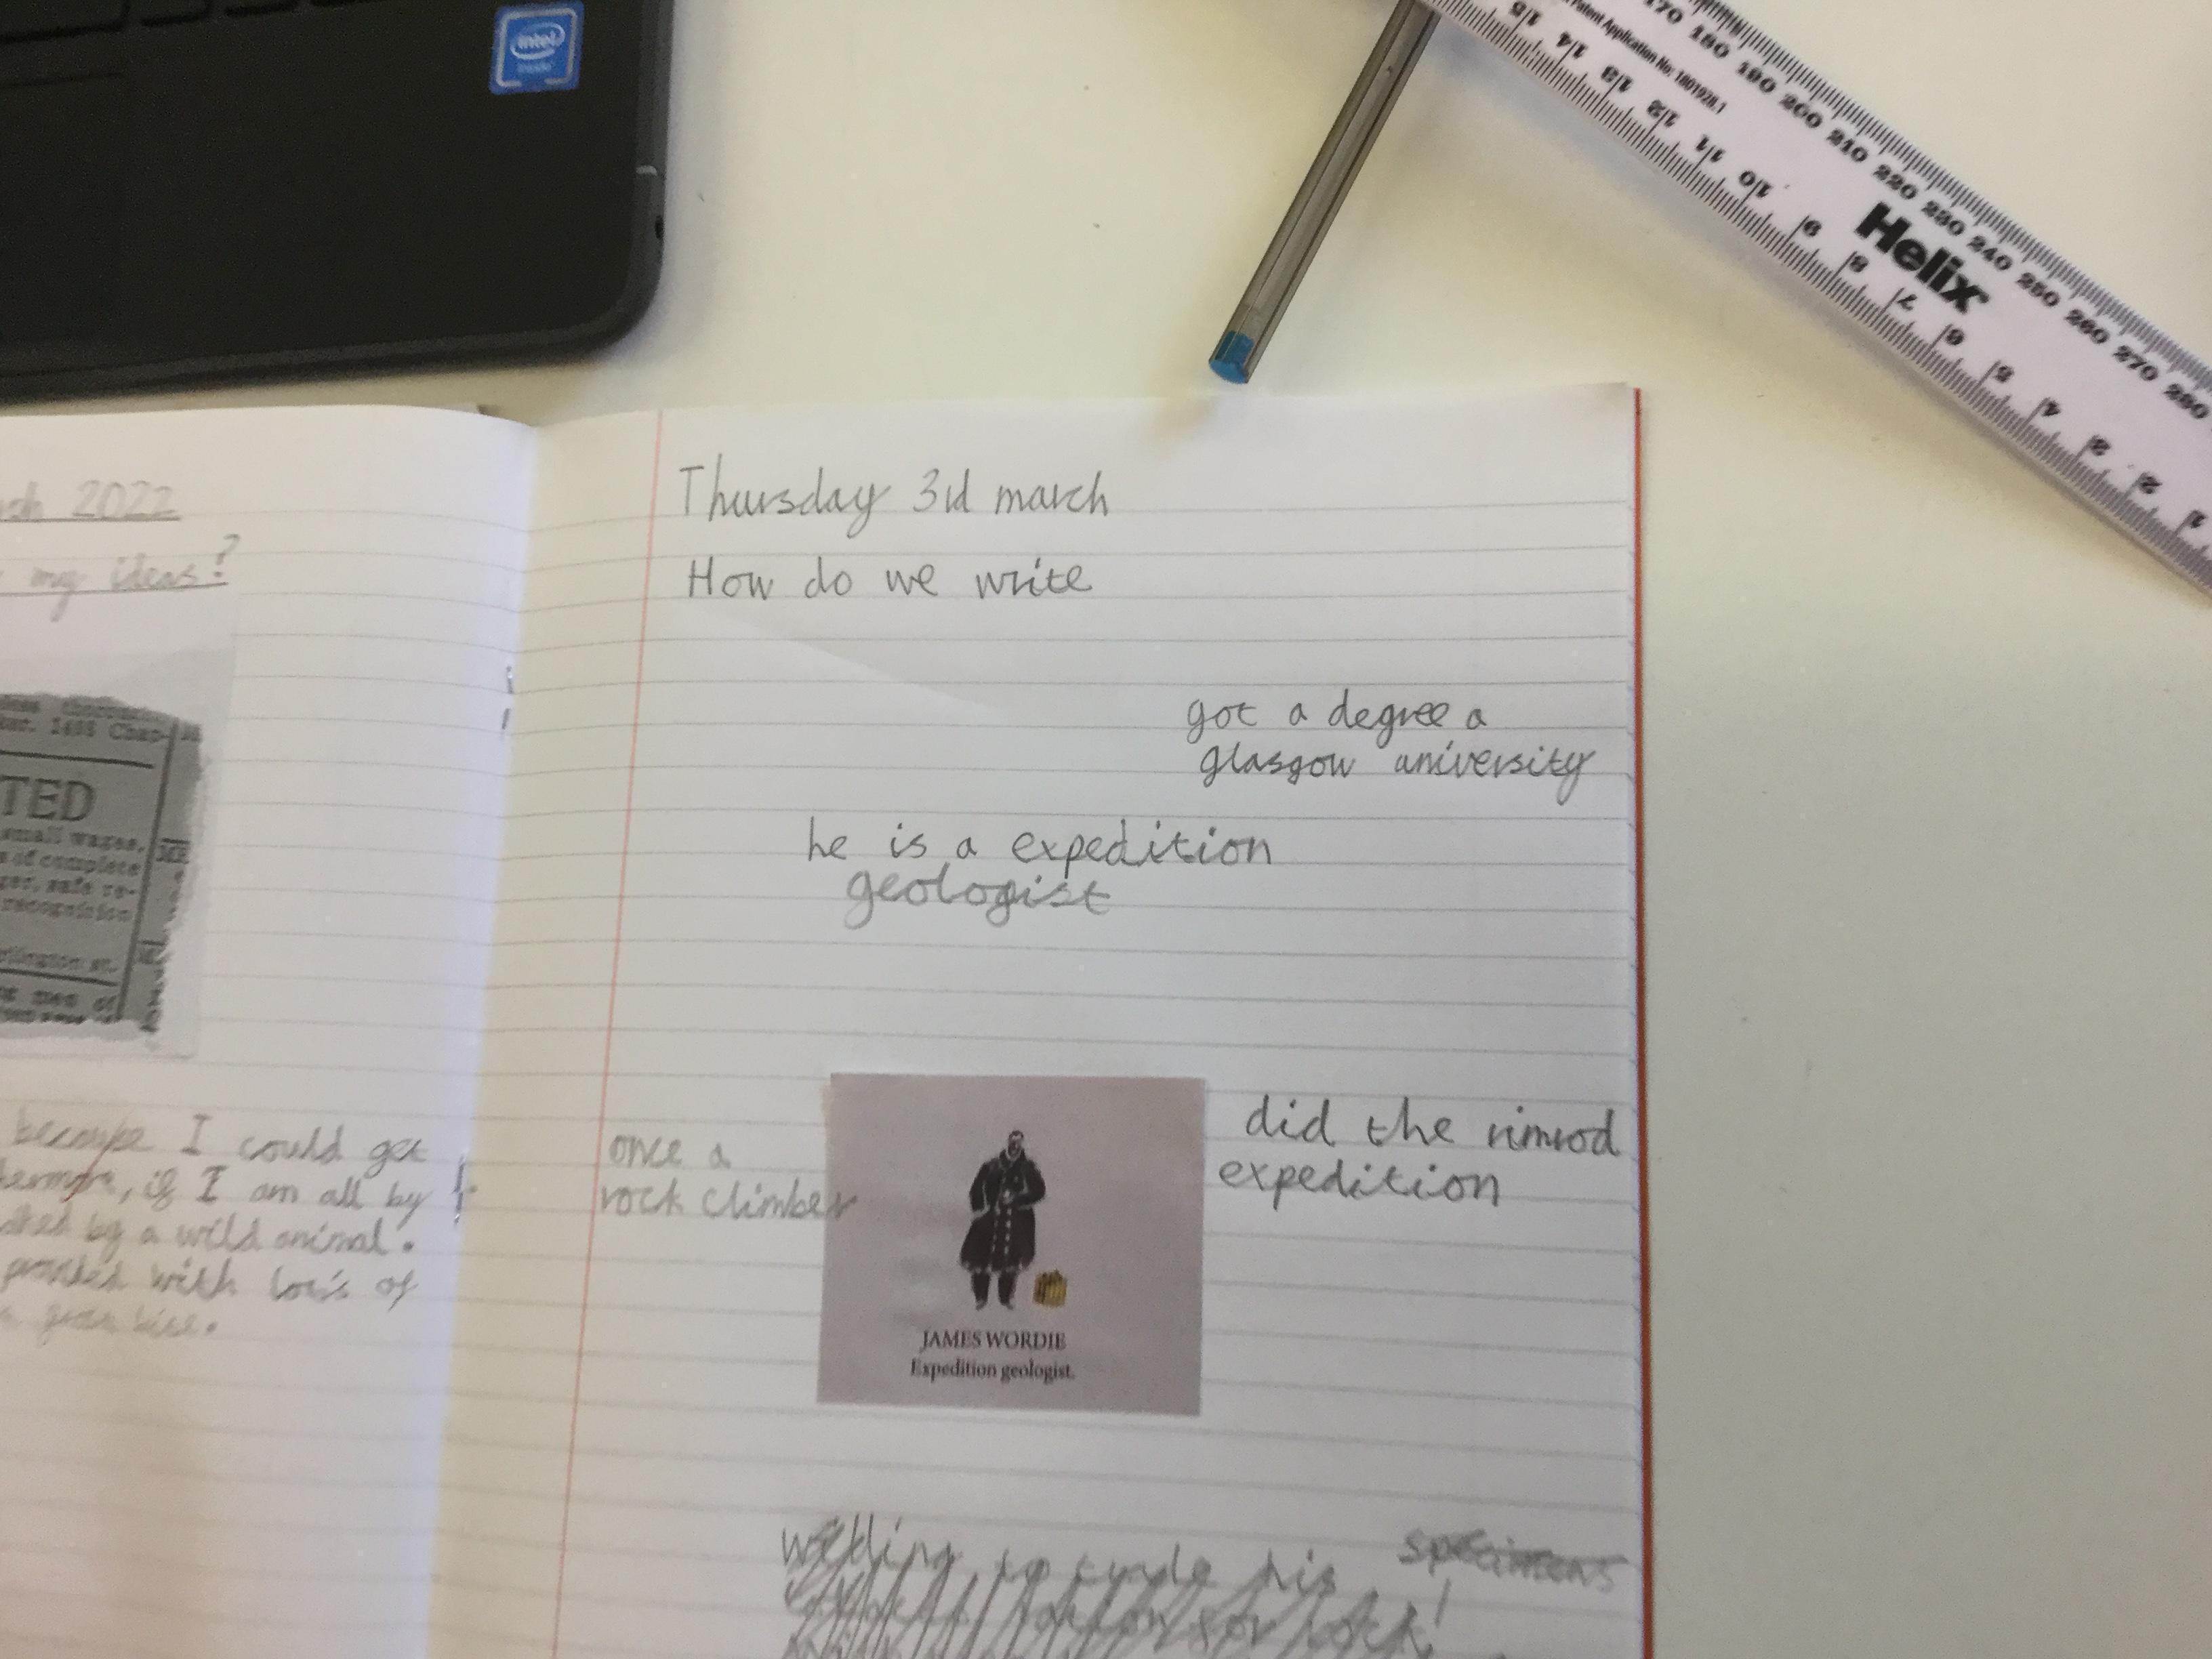 intel
inside
Patent Application No: 1801928.1
170 180 190 200 210 220 230 240 250 260 270 280
15 14 13 12 11 10 9 8 7 6 5 4 3 2 1
Helix
2022
my ideas?
1488 Chap-
TED
small wages,
of complete
safe re-
recognition
men of
because I could get
if I am all by
by a wild animal.
with lots of
Thursday 3rd march
How do we write
got a degree a
glasgow university
he is a expedition
geologist
once a
rock climber
did the nimrod
expedition
JAMES WORDIE
Expedition geologist.
willing to trade his specimens
for